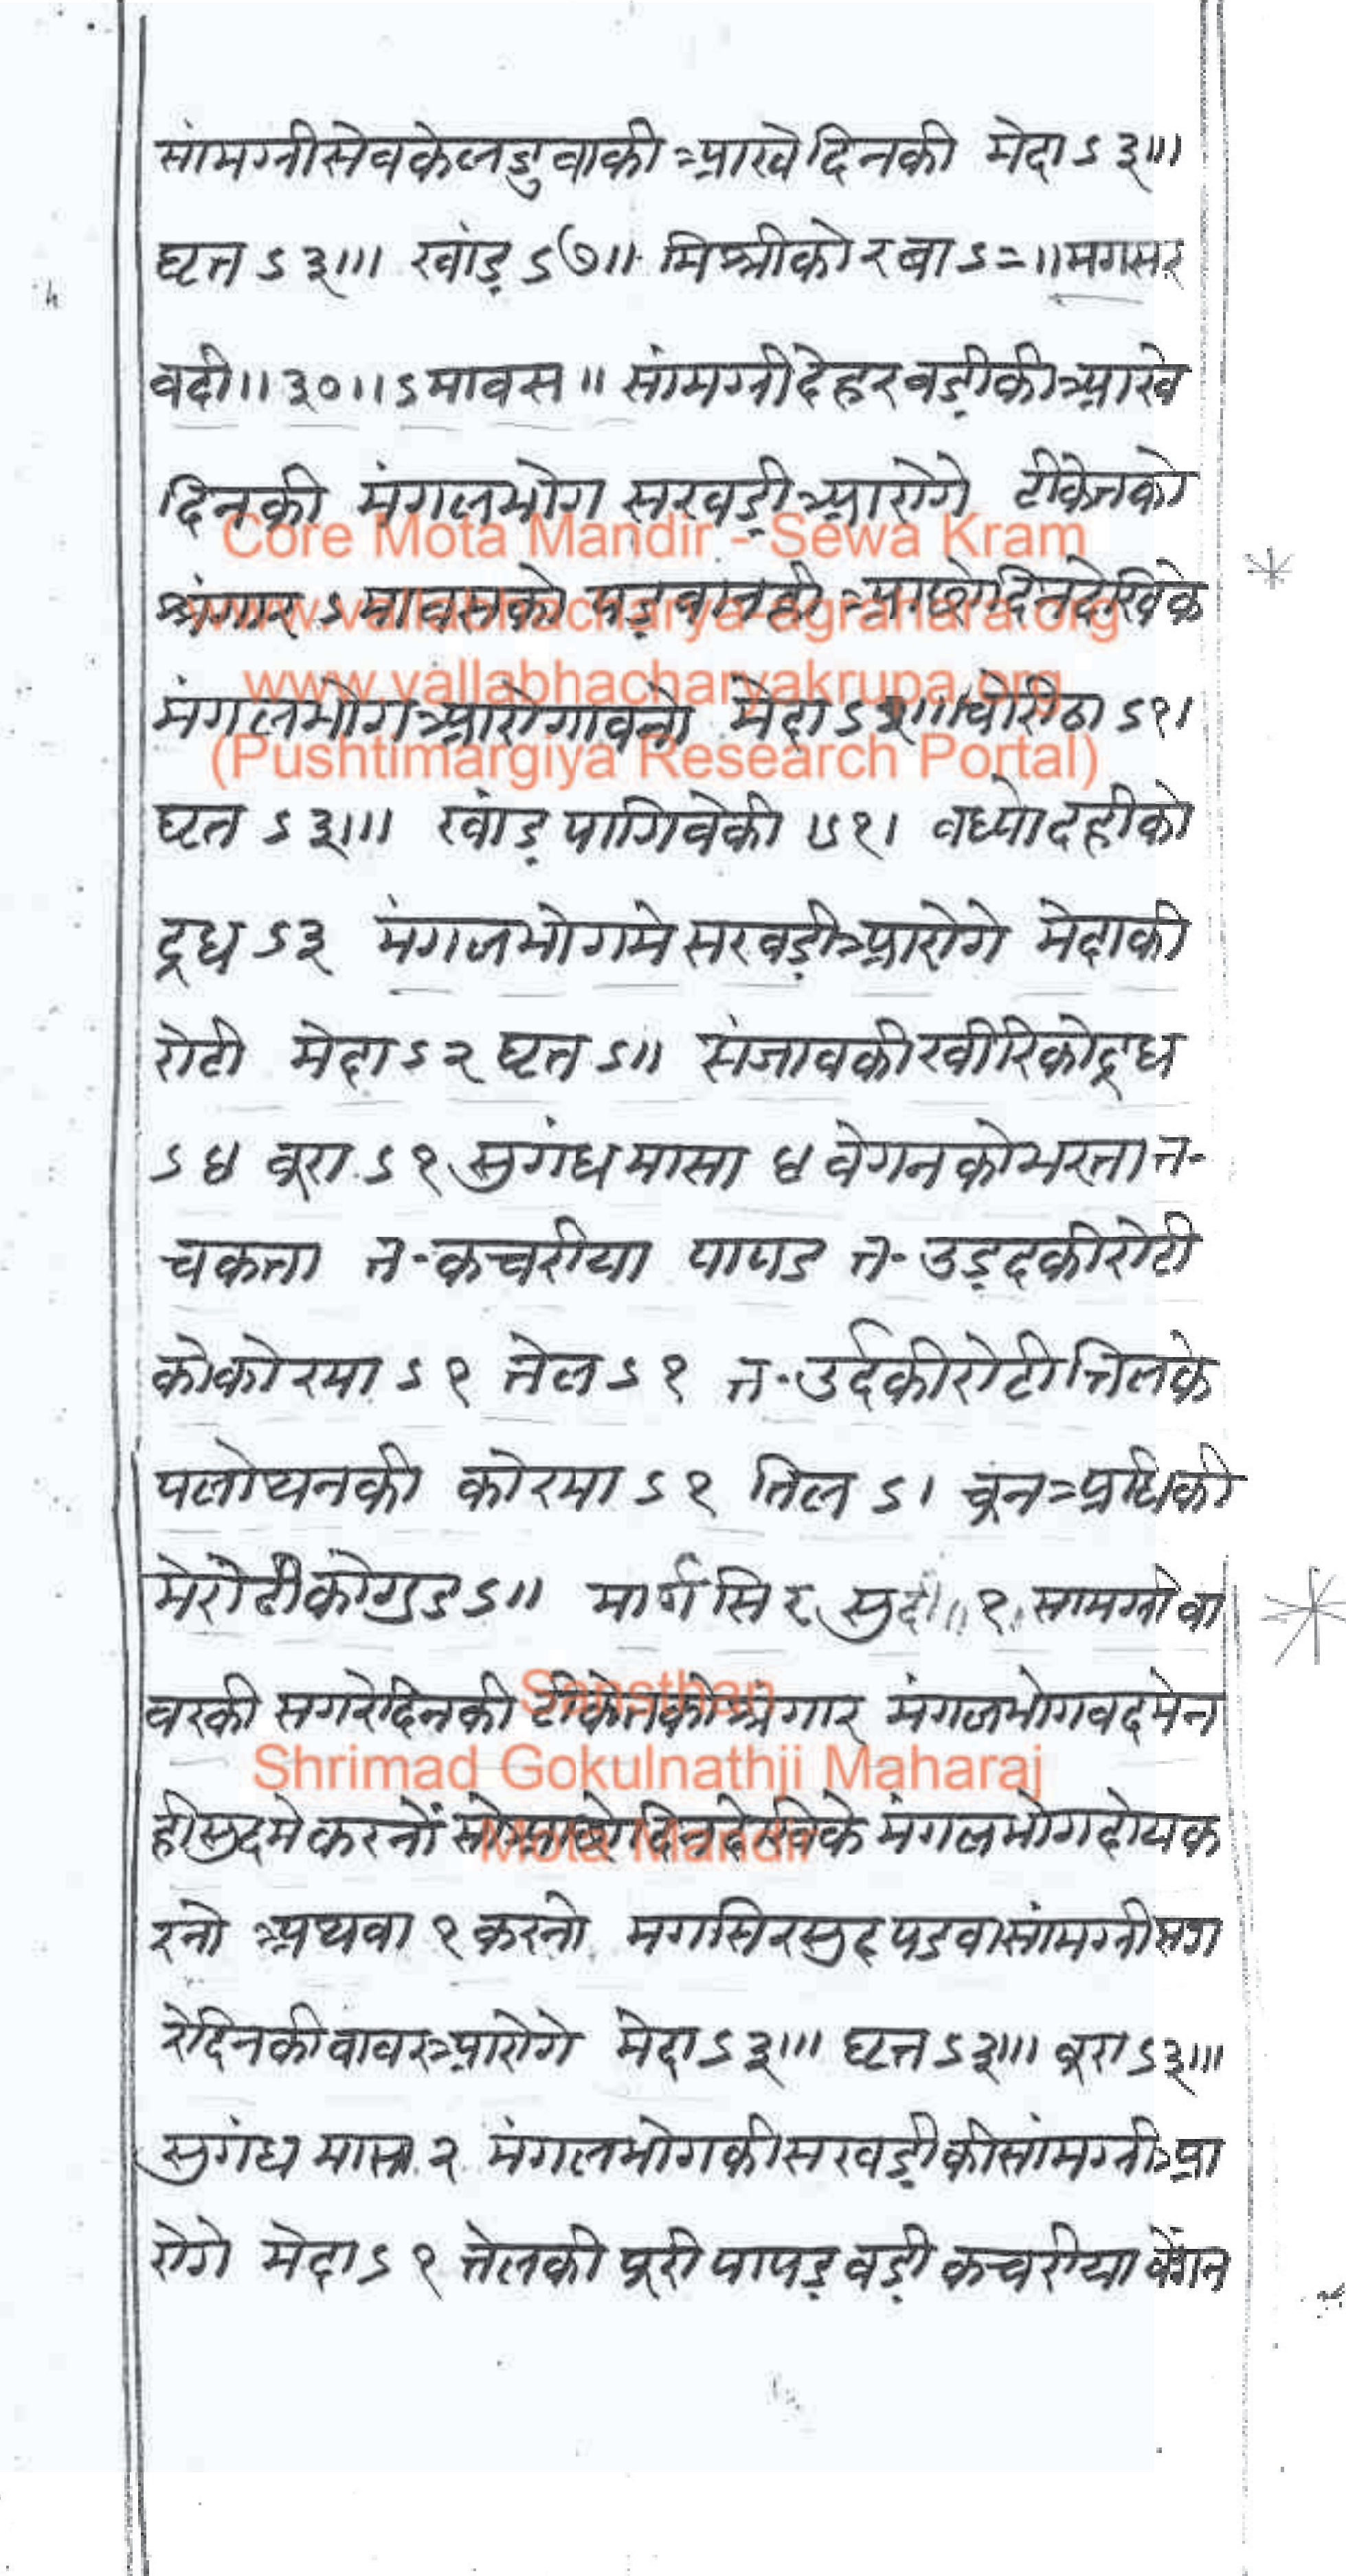 सांमग्नीसेवकेलडुवाकी आखेदिनकी मेदा ऽ३॥।
घृत ऽ३॥। खांड़ ऽ७॥ मिश्रीकोरबा ऽ=॥ मगसर
वदी॥३०॥ऽमावस॥ सांमग्नीदेहरबड़ीकीआखे
दिनकी मंगलभोग सखड़ीआरोगे टीकेतको
श्रंगार ऽमावसको पड़वानही आछोदिनदेखिके
मंगलभोगआरोगावनो मेदा चोरीठा ऽ१।
घृत ऽ३॥। खांड़ पागिवेकी ऽ१। बध्योदहीको
दूध ऽ३ मंगलभोगमेसखड़ीआरोगे मेदाकी
रोटी मेदा ऽ२ घृत ऽ॥ संजावकीखीरिकोदूध
ऽ४ बूरा ऽ१ सुगंधमासा ४ वेगनकोभरता त-
चकता त-कचरीया पापड त-उड़दकीरोटी
कोकोरमा ऽ१ तेल ऽ१ त-उर्दकीरोटीतिलके
पलोथनकी कोरमा ऽ१ तिल ऽ। चूनआधिकी
मेरोटीकोगुड ऽ॥ मार्गसिर सुदी॥१ सामग्नीबा
वरकी सगरेदिनकी टीकेतकोश्रंगार मंगलभोगवदमेन
हीसुदमेकरनों सोआछोदिनदेखिके मंगलभोगदोयक
रनो अथवा १ करनो मगसिरसुदपडवासांमग्नीसग
रेदिनकीबावरआरोगे मेदा ऽ३॥। घृत ऽ३॥। बूरा ऽ३॥।
सुगंध मासा २ मंगलभोगकीसखड़ीकीसांमग्नीआ
रोगे मेदा ऽ१ तेलकी पूरी पापड़ वड़ी कचरीया बेंगन
Core Mota Mandir - Sewa Kram
www.vallabhacharya-agrahara.org
www.vallabhacharyakrupa.org
(Pushtimargiya Research Portal)
Sansthan
Shrimad Gokulnathji Maharaj
Mota Mandir